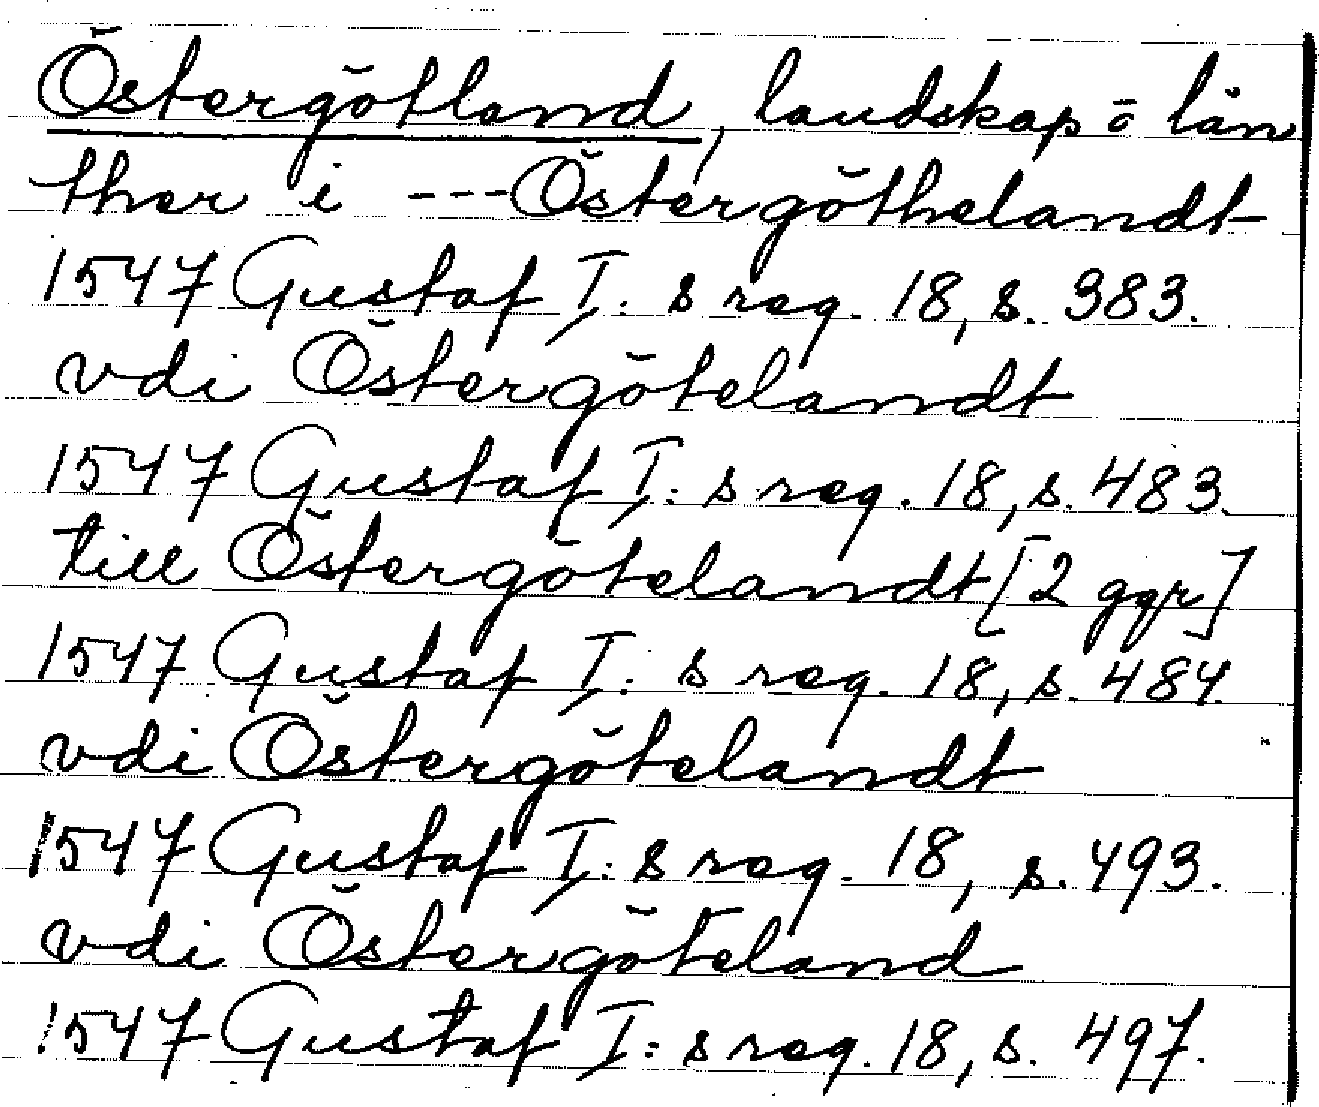 Östergötland, landskap ō län
ther i --- Östergöthelandt
1547 Gustaf I: s reg. 18, s. 383.
vdi Östergötelandt
1547 Gustaf I: s reg. 18, s. 483.
till Östergötelandt [2 ggr]
1547 Gustaf I: s reg. 18, s. 484.
vdi Östergötelandt
1547 Gustaf I: s reg. 18, s. 493.
vdi Östergöteland
1547 Gustaf I: s reg. 18, s. 497.